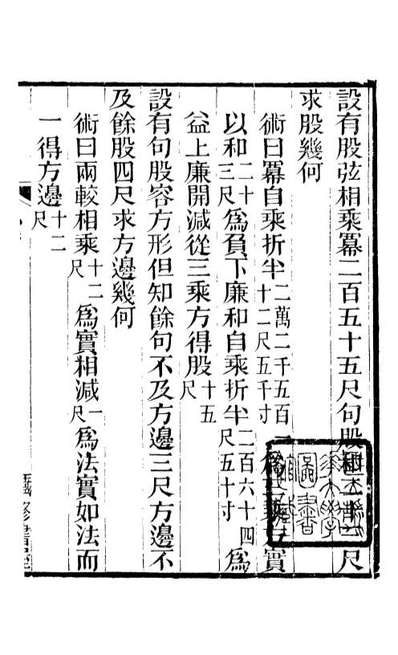 設有股弦相乘冪二百五十五尺句股和二十三尺
求股幾何
術曰冪自乘折半二萬二千五百一十二尺五千寸為三乘方實
以和二十三尺為負下廉和自乘折半二百六十四尺五十寸為
益上廉開減從三乘方得股十五
設有句股容方形但知餘句不及方邊三尺方邊不
及餘股四尺求方邊幾何
術曰兩較相乘十二尺為實相減一尺為法實如法而
一得方邊十二尺